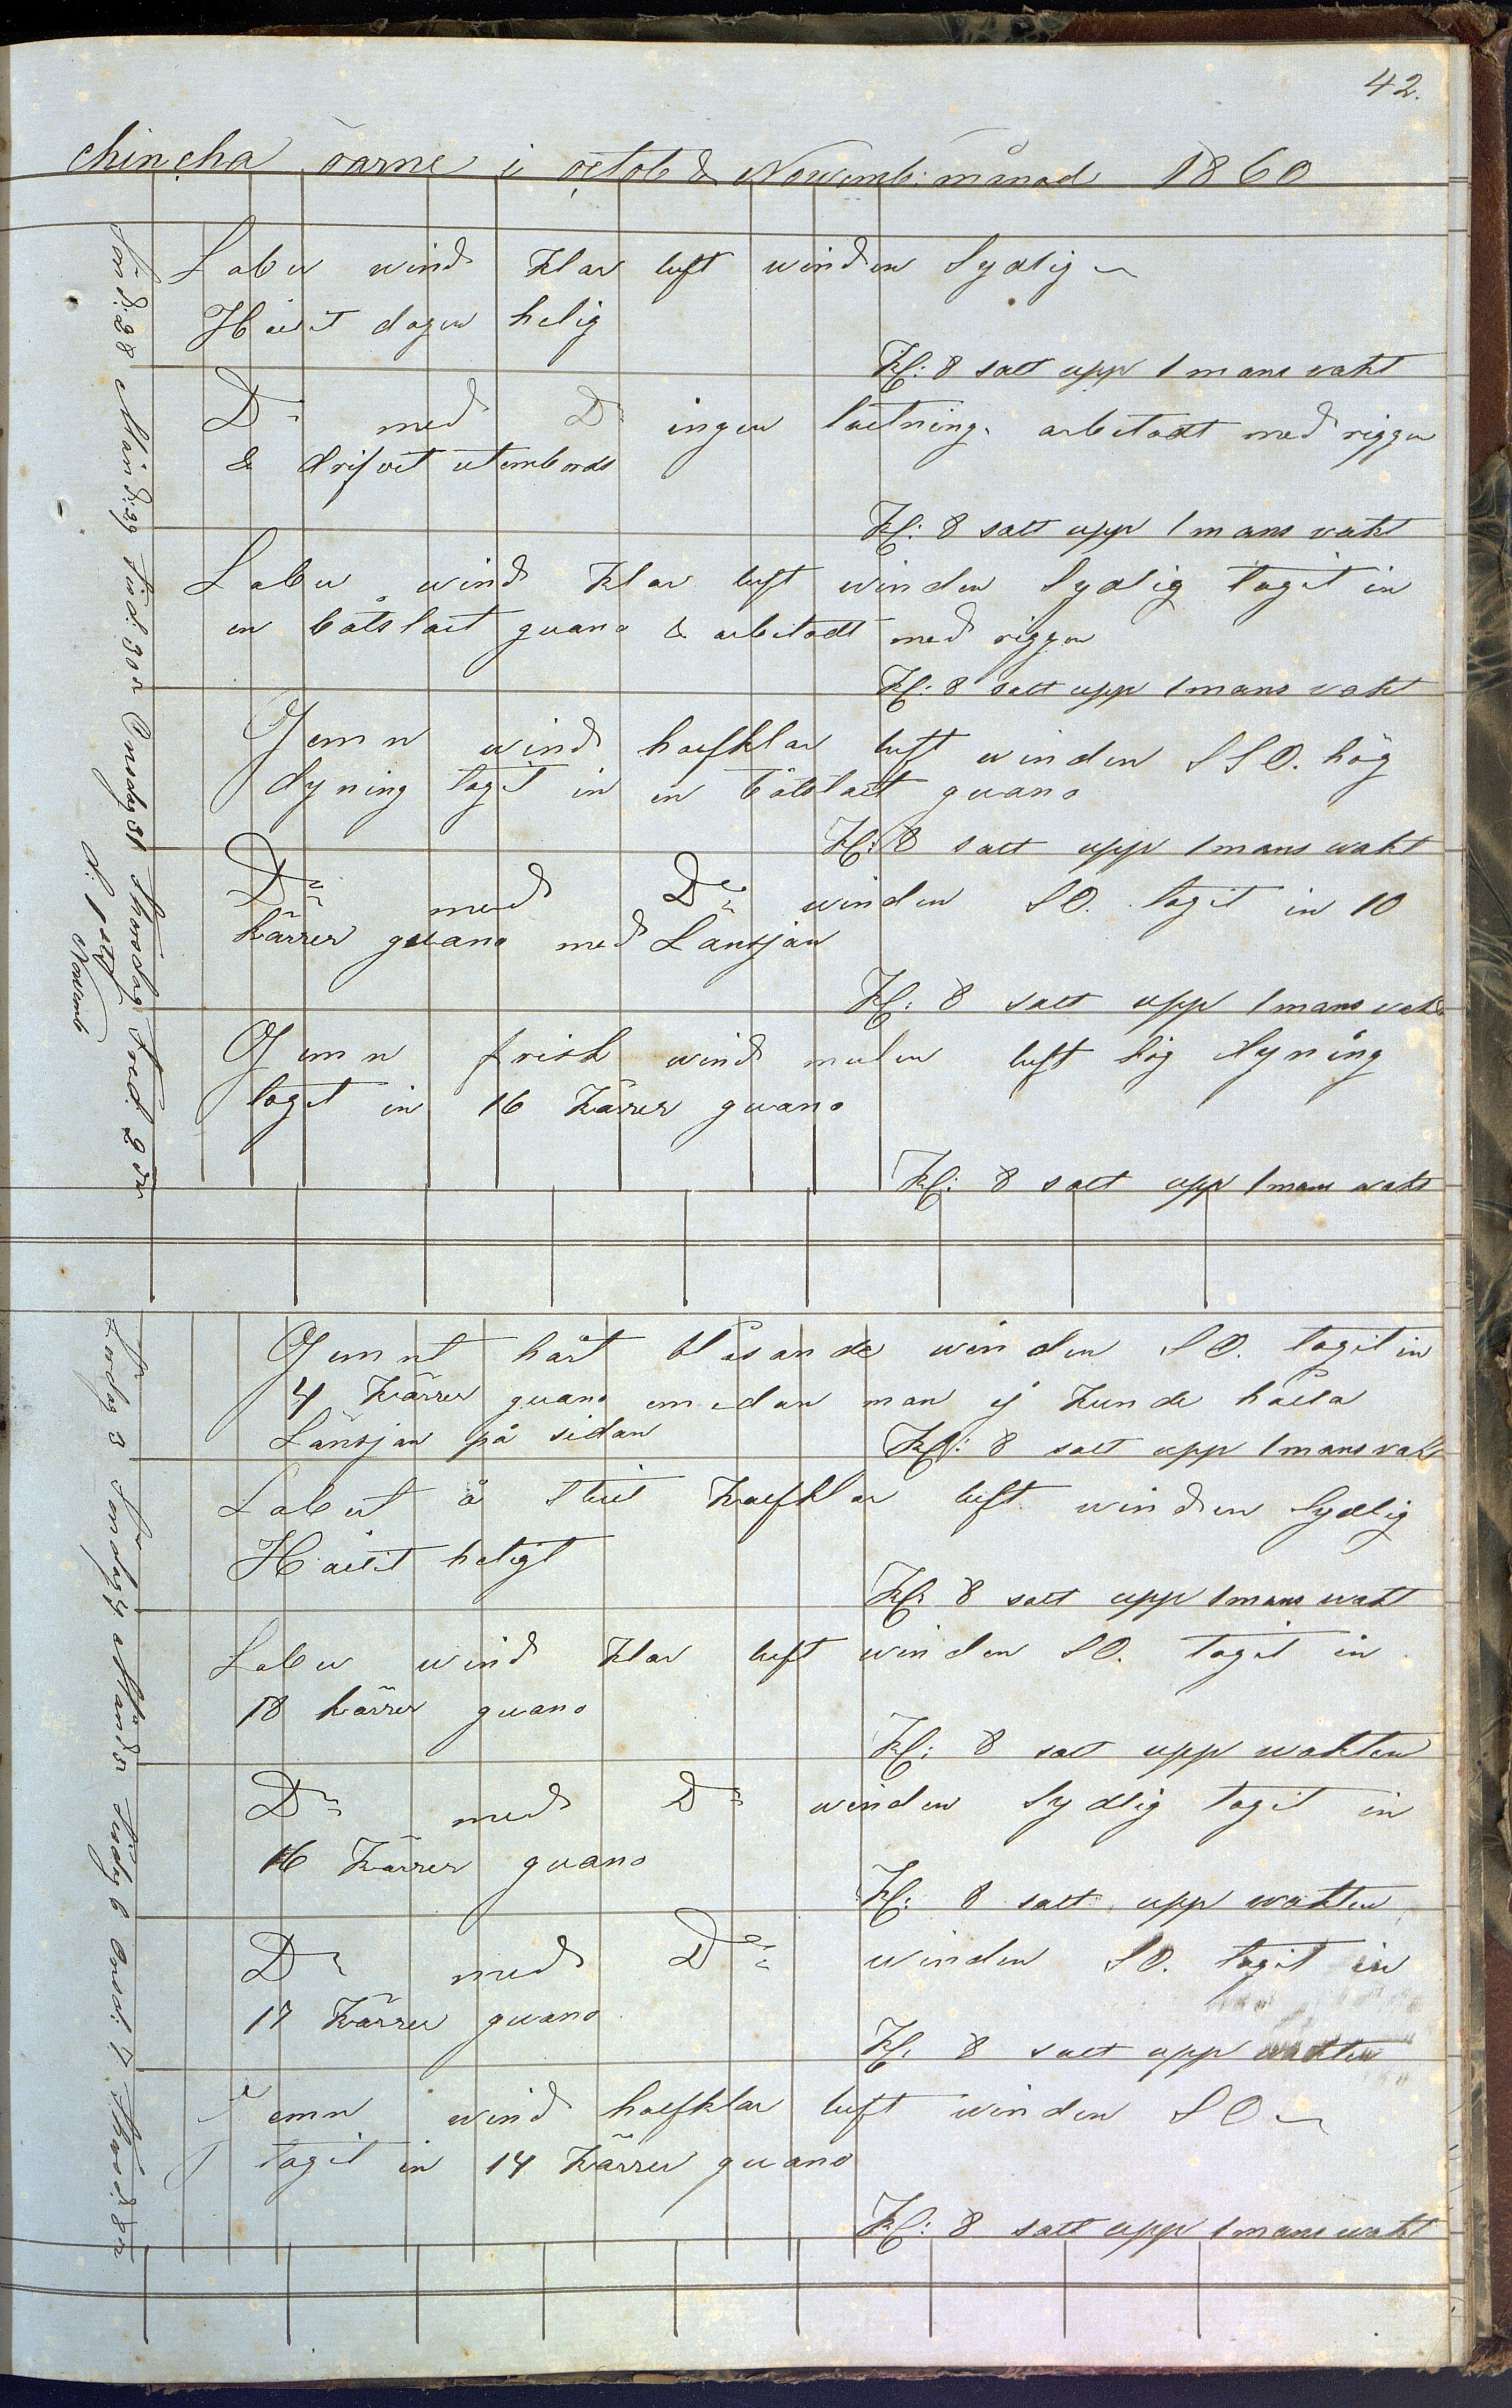 42.
Chincha öarne i octob & Novemb: månad 1860
Sönd: 28
Laber wind klar luft winden Sydlig
Hållit dagen helig
Kl: 8 satt upp 1 mans vakt
Månd: 29
Do med Do ingen lastning. arbetadt med riggen
& drifvit utombords
Kl: 8 satt upp 1 mans vakt
Tisd: 30
Laber wind klar luft winden Sydlig tagit in
en båtslast guano & arbetadt med riggen
Kl: 8 satt upp 1 mans vakt
Onsdag 31
Jemn wind halfklar luft winden SSO. hög
dyning tagit in en båtslast guano
Kl: 8 satt upp 1 mans wakt
Thorsdag
d: 1
Novemb
Do med Do winden SO. tagit in 10
kärrer guano med Länsjan
Kl: 8 satt upp 1 mans vakt
Fred: 2
Jemn frisk wind mulen luft hög dyning
tagit in 16 kärrer guano
Kl: 8 satt upp 1 mans wakt
Lördag 3
Jemnt hårt blåsande winden SO. tagit in
4 kärrer guano emedan man ej kunde hålla
Länsjan på sidan
Kl: 8 satt upp 1 mans vakt
Söndag 4
Labert å stilt halfklar luft winden Sydlig
Hållit heligt
Kl: 8 satt upp 1 mans wakt
Månd 5
Laber wind klar luft winden SO. tagit in
18 kärrer guano
Kl: 8 satt upp wakten
Tisdag 6
Do med Do winden Sydlig tagit in
16 kärrer guano
Kl: 8 satt upp wakten
Onsd: 7
Do med Do winden SO. tagit in
17 kärrer guano
Kl: 8 satt upp wakten
Thorsd: 8
Jemn wind halfklar luft winden SO
tagit in 14 kärrer guano
Kl: 8 satt upp 1 mans wakt